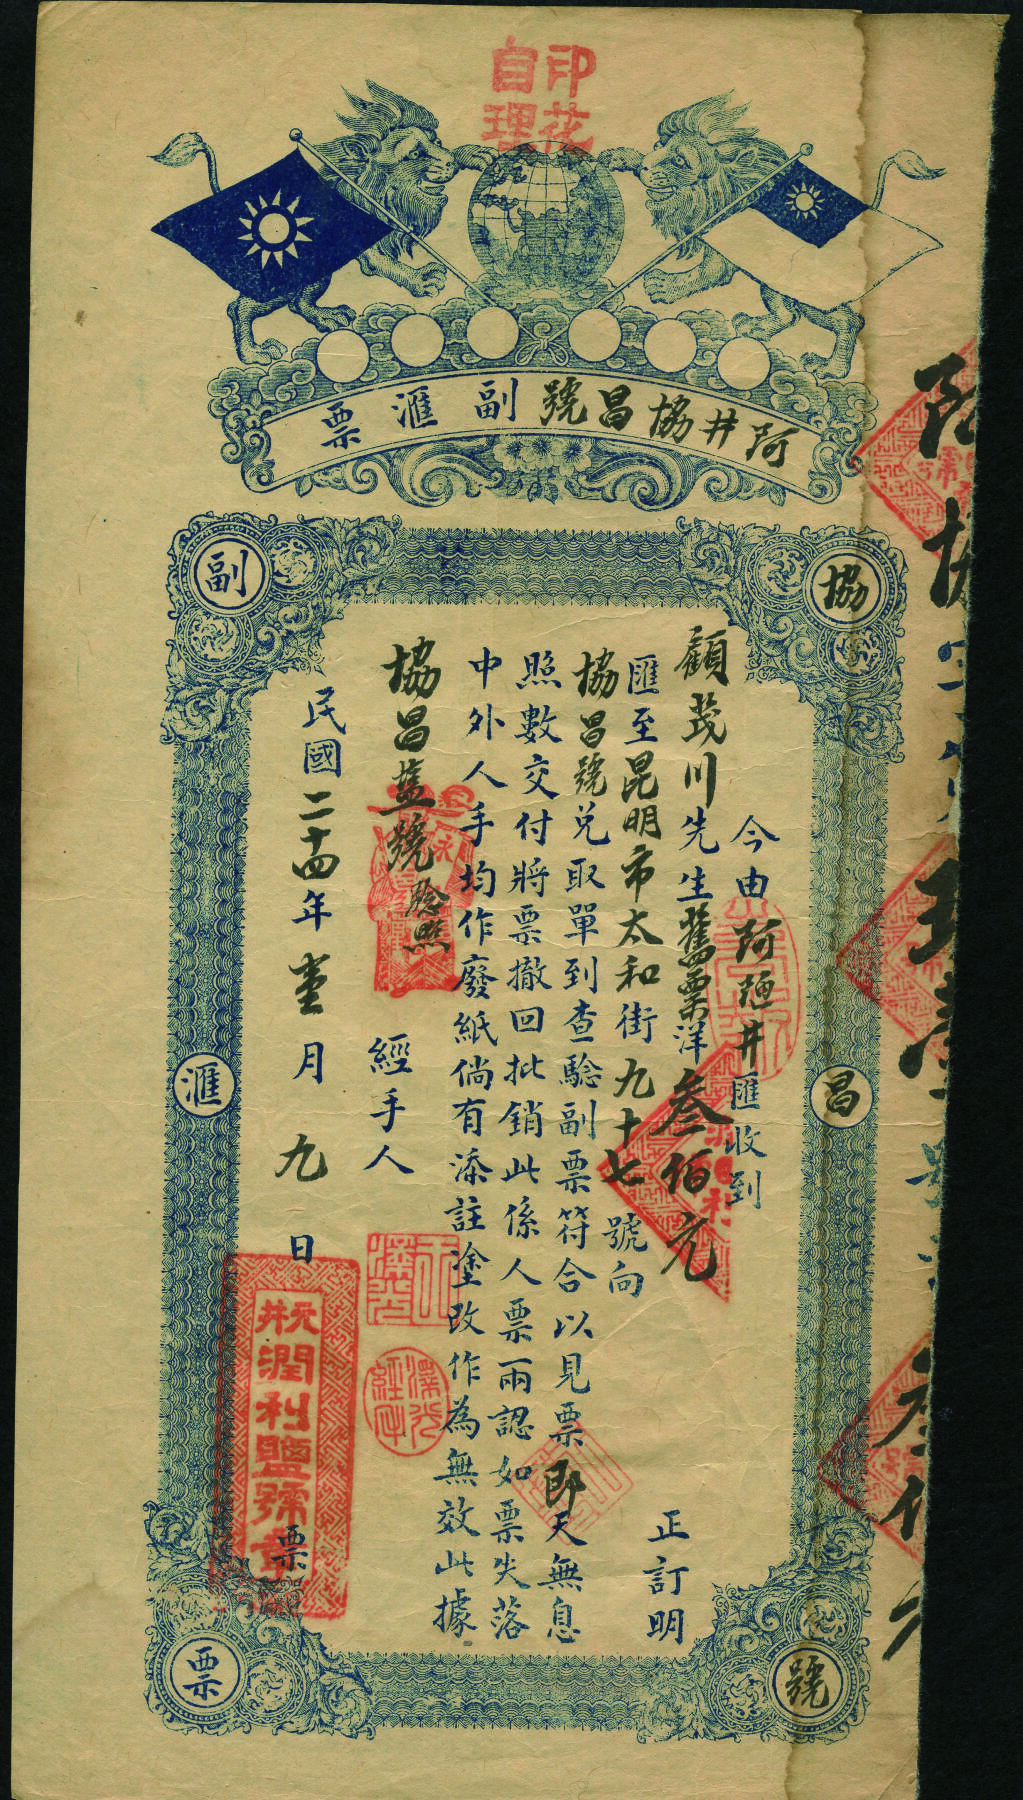 印花
自理
阿井協昌號副滙票
協昌號
副滙票
今由阿𨒪井匯收到
顧茂川先生舊票洋叁佰元正訂明
匯至昆明市太和街九十七號向
協昌號兌取單到查驗副票符合以見票即天無息
照數交付將票撤回批銷此係人票兩認如票失落
中外人手均作廢紙倘有添註塗改作為無效此據
協昌盐號驗照
經手人
民國二十四年壹月九日
票
元井
潤利鹽號章
澤光
經手